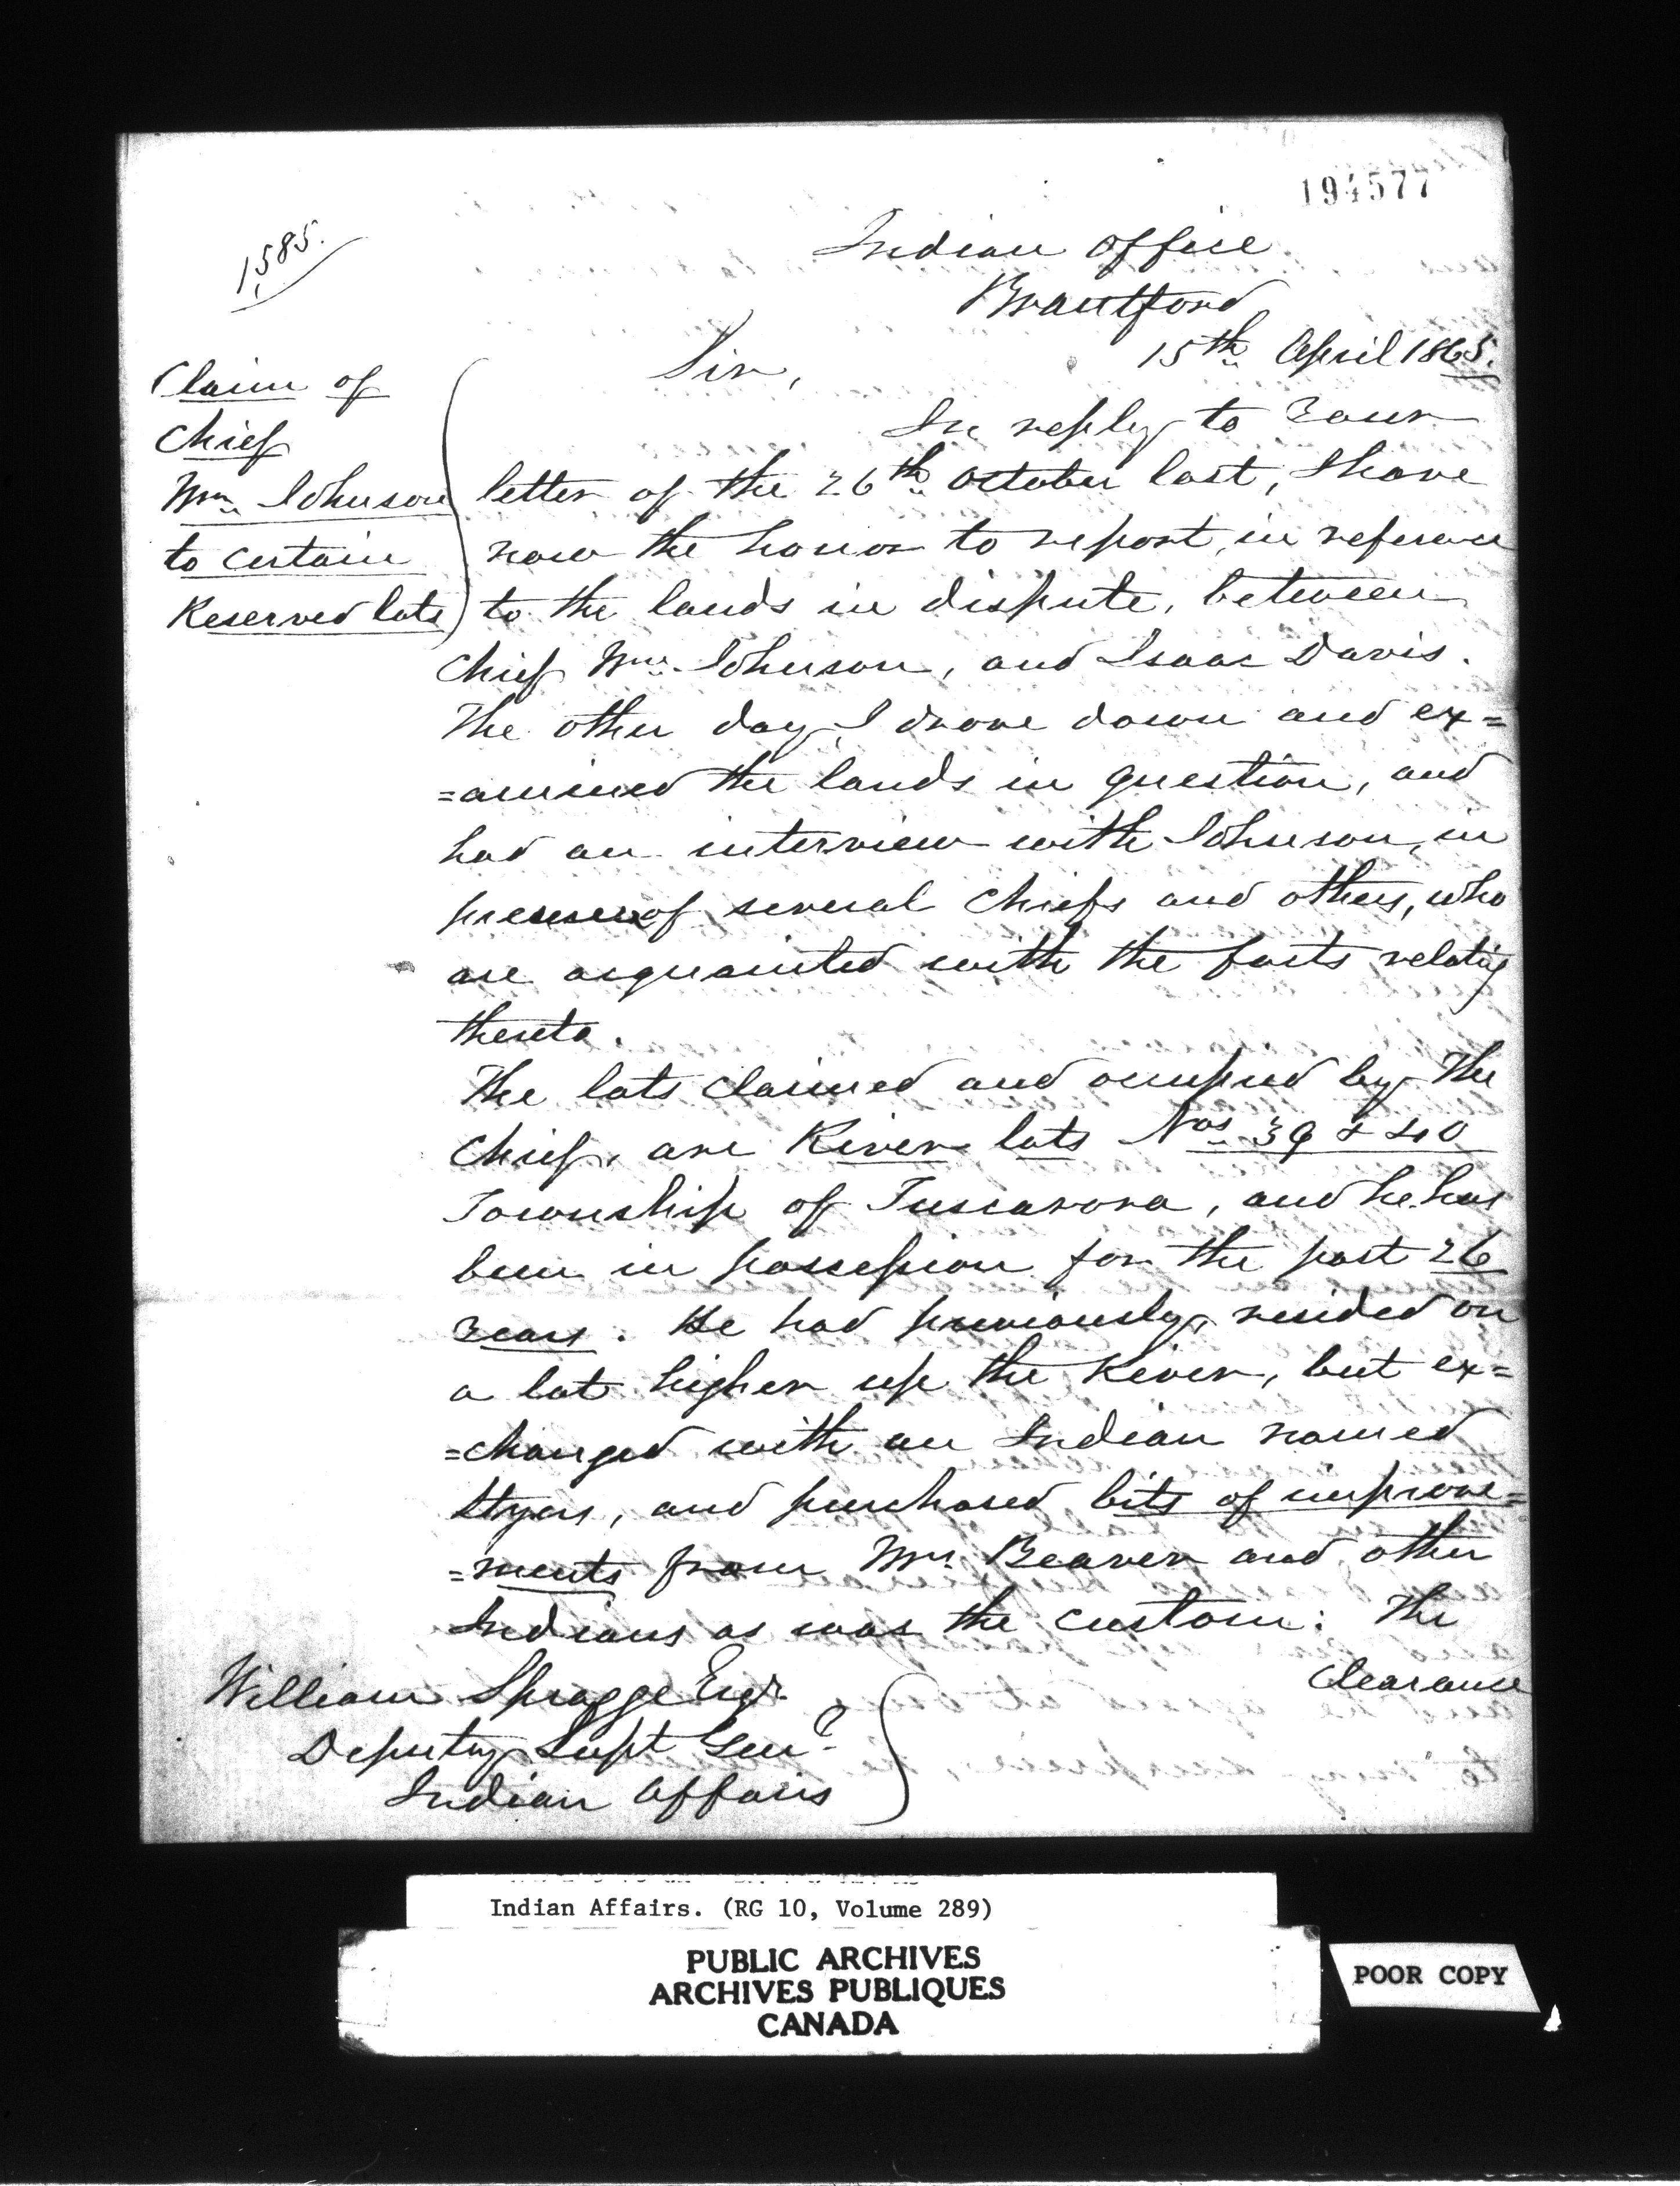 194577
1585.
Indian Office
Brantford
15th April 1865.
Claim of
Chief
Wm Johnson
to certain
Reserved lots
Sir,
In reply to Your
letter of the 26th October last, I have
now the honor to report, in reference
to the lands in dispute, between
Chief Wm Johnson, and Isaac Davis.
The other day, I drove down and ex=
=amined the lands in question, and
had an interview with Johnson, in
presence of several Chiefs and others, who
are acquainted with the facts relating
thereto.
The lots claimed and occupied by the
Chief, are River lots Nos 39 & 40
Township of Tuscarora, and he has
been in possession for the past 26
Years. He had previously, resided on
a lot higher up the River, but ex=
=changed with an Indian named
Styers, and purchased bits of improve=
=ments from Mrs Beaver and other
Indians as was the custom: The
Clearance
William Spragge Esqr.
Deputy Supt Genl
Indian Affairs
Indian Affairs. (RG 10, Volume 289)
PUBLIC ARCHIVES
ARCHIVES PUBLIQUES
CANADA
POOR COPY